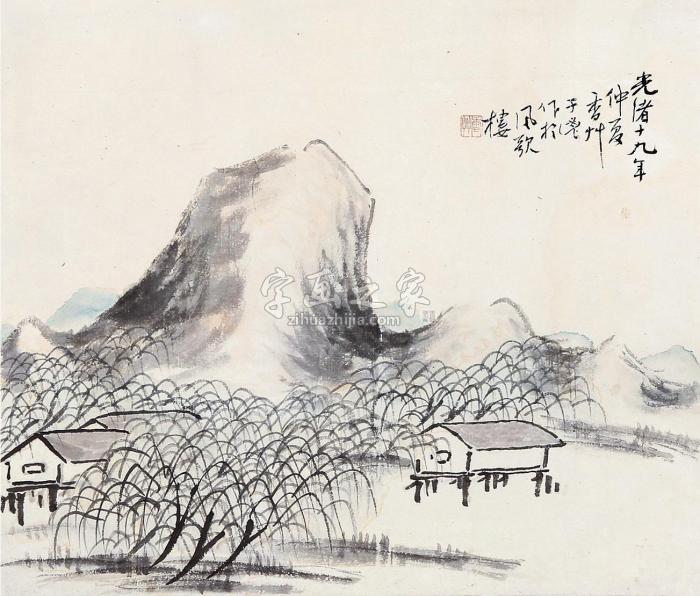 光緒十九年
仲夏
香艸
子
作於
風歌
樓
字画之家
zihuazhijia.com